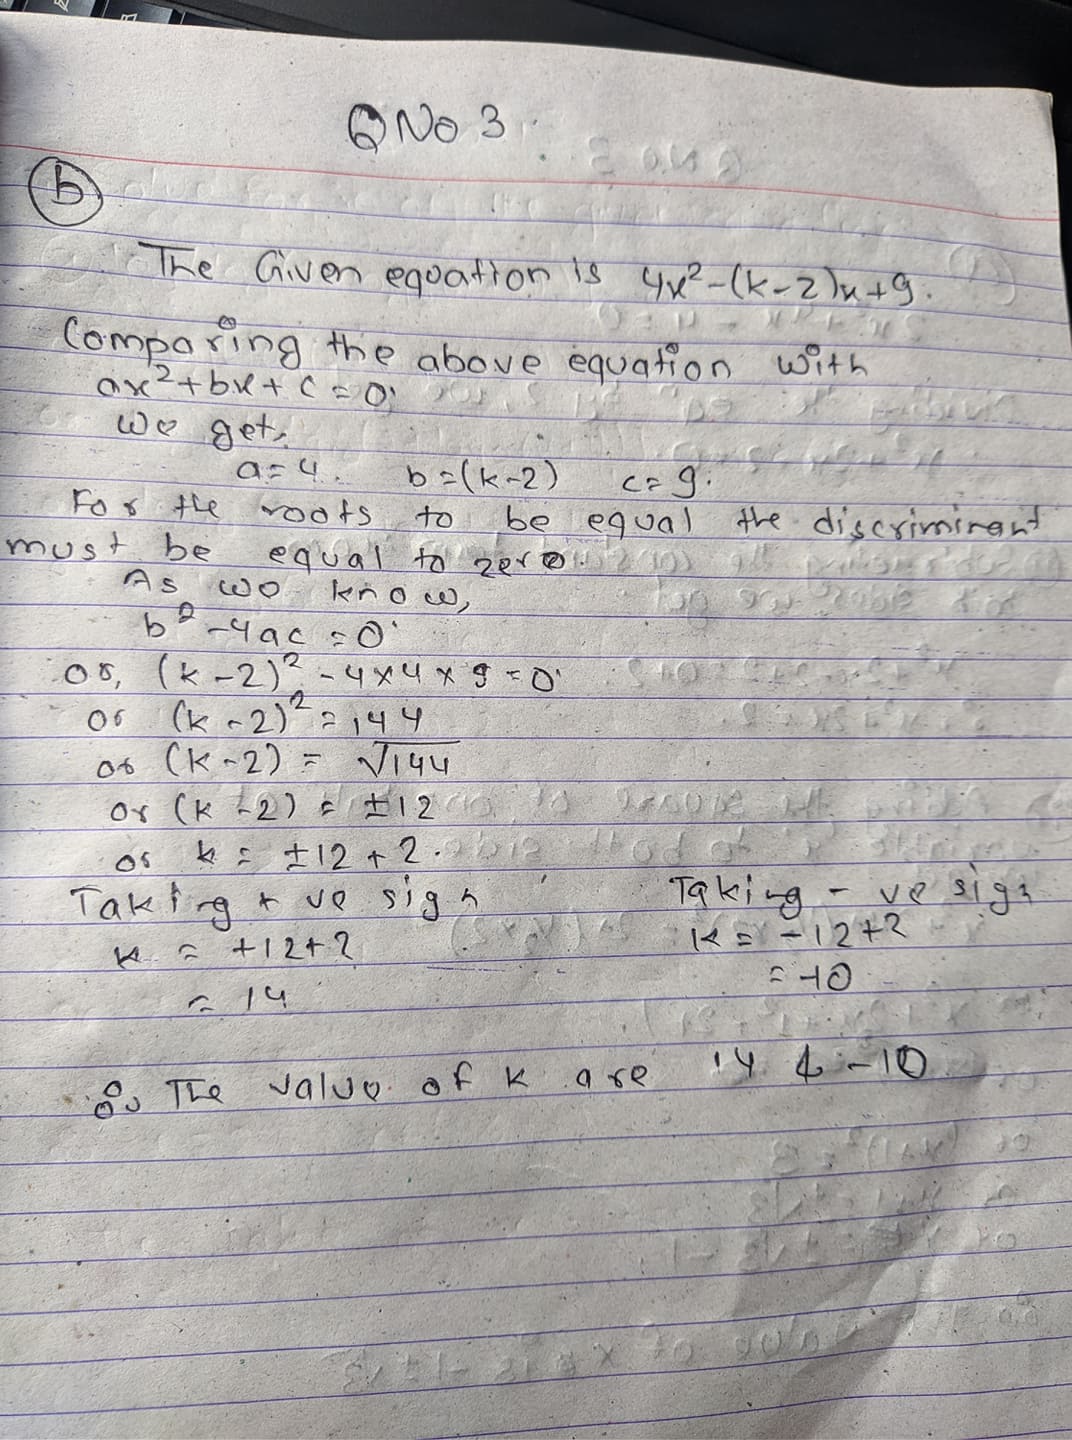 Q No 3.
b
The Given equation is 4x²-(k-2)x+9.
Comparing the above equation with
ax²+bx+c=0.
We get,
a=4. b=(k-2) c=9.
For the roots to be equal the discriminant
must be equal to zero.
As we know,
b²-4ac=0
or, (k-2)²-4×4×9=0
or (k-2)²=144
or (k-2) = √144
or (k-2) = ±12
or k = ±12+2.
Taking + ve sign Taking - ve sign
k = +12+2 k = -12+2
= 14 = -10
∴ The value of k are 14 & -10